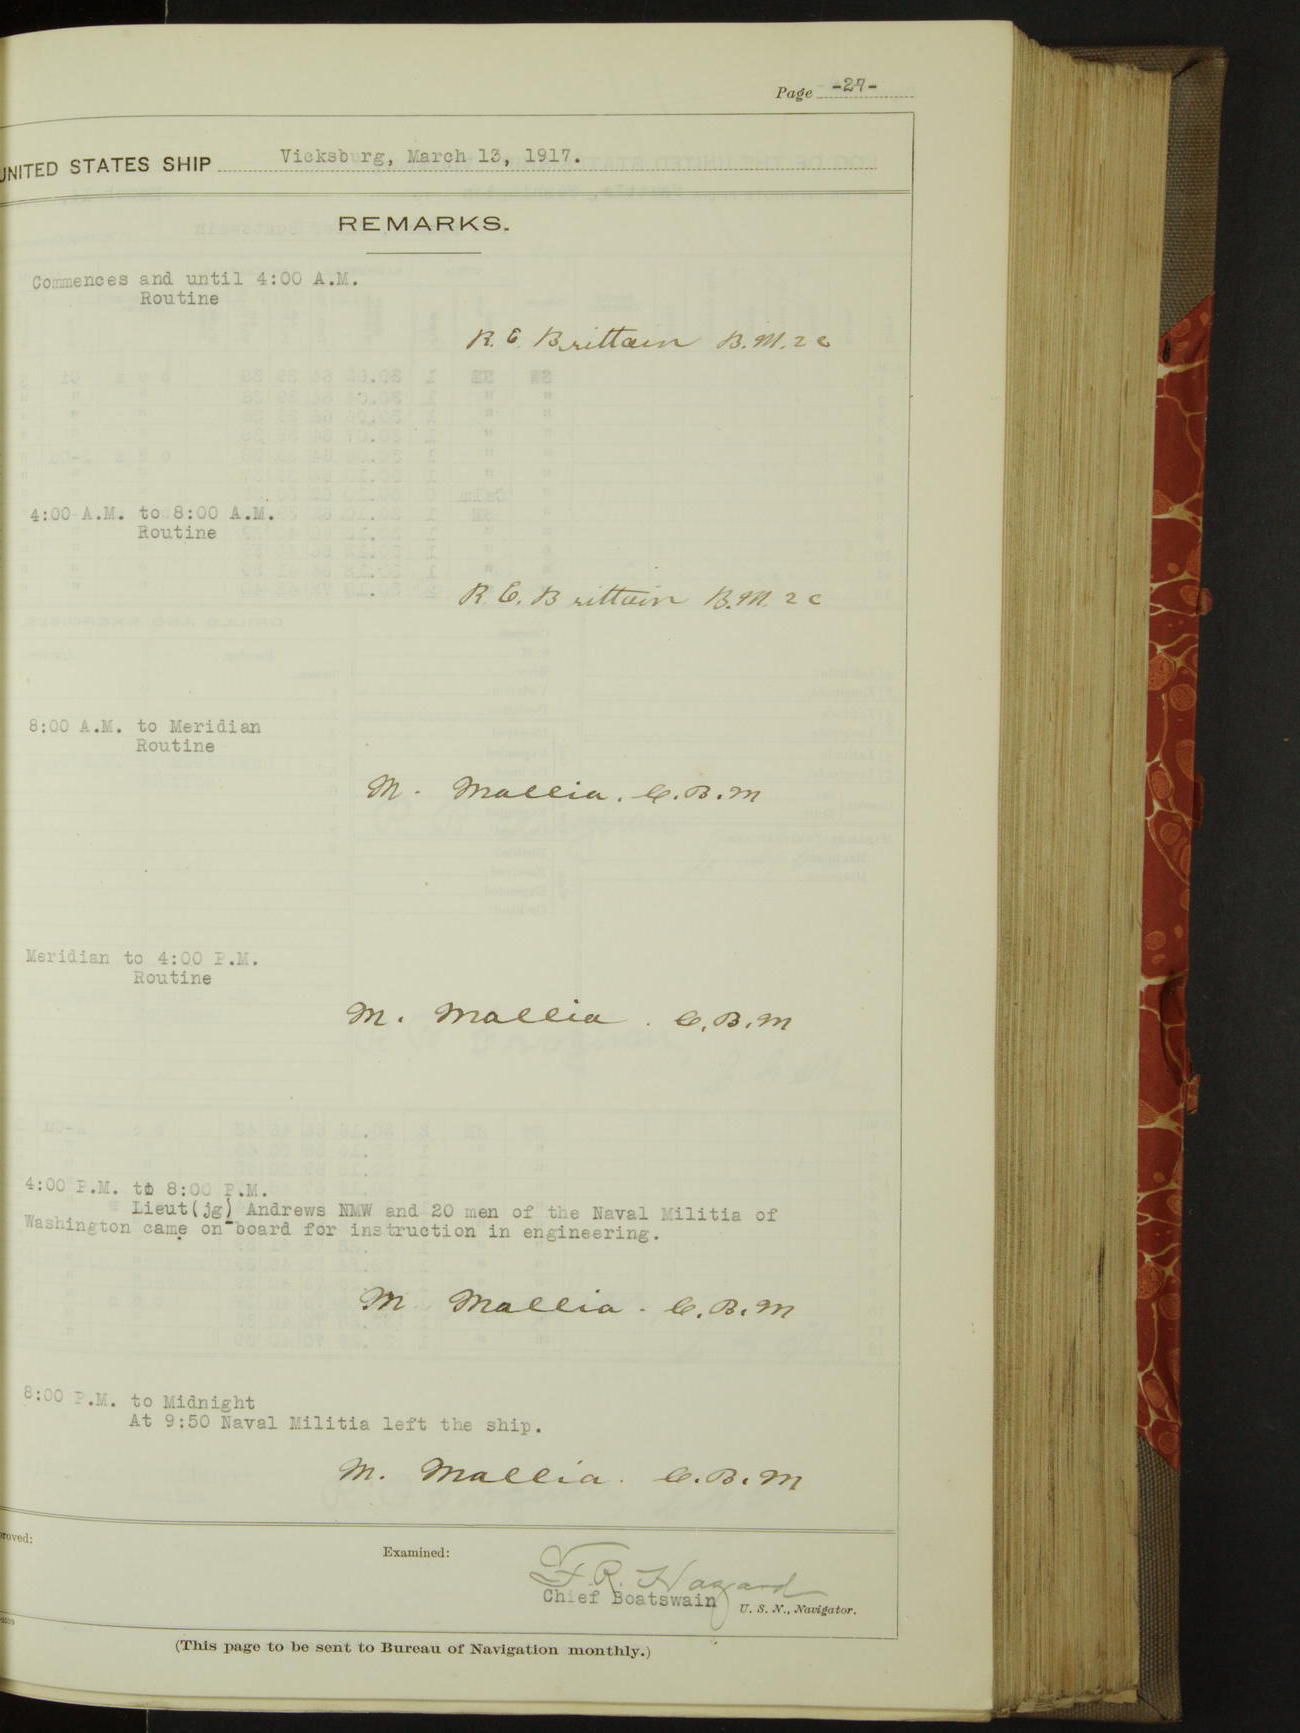 Page -27-
UNITED STATES SHIP Vicksburg, March 13, 1917.
REMARKS.
Commences and until 4:00 A.M.
Routine
R. E. Brittain B.M. 2 c
4:00 A.M. to 8:00 A.M.
Routine
R. E. Brittain B.M. 2 c
8:00 A.M. to Meridian
Routine
M. Mallia. C.B.M
Meridian to 4:00 P.M.
Routine
M. Mallia. C.B.M
4:00 P.M. to 8:00 P.M.
Lieut(jg) Andrews NMW and 20 men of the Naval Militia of
Washington came on-board for instruction in engineering.
M Mallia. C.B.M
8:00 P.M. to Midnight
At 9:50 Naval Militia left the ship.
M. Mallia. C.B.M
proved:
Examined:
F. R. Hazard
Chief Boatswain U. S. N., Navigator.
(This page to be sent to Bureau of Navigation monthly.)